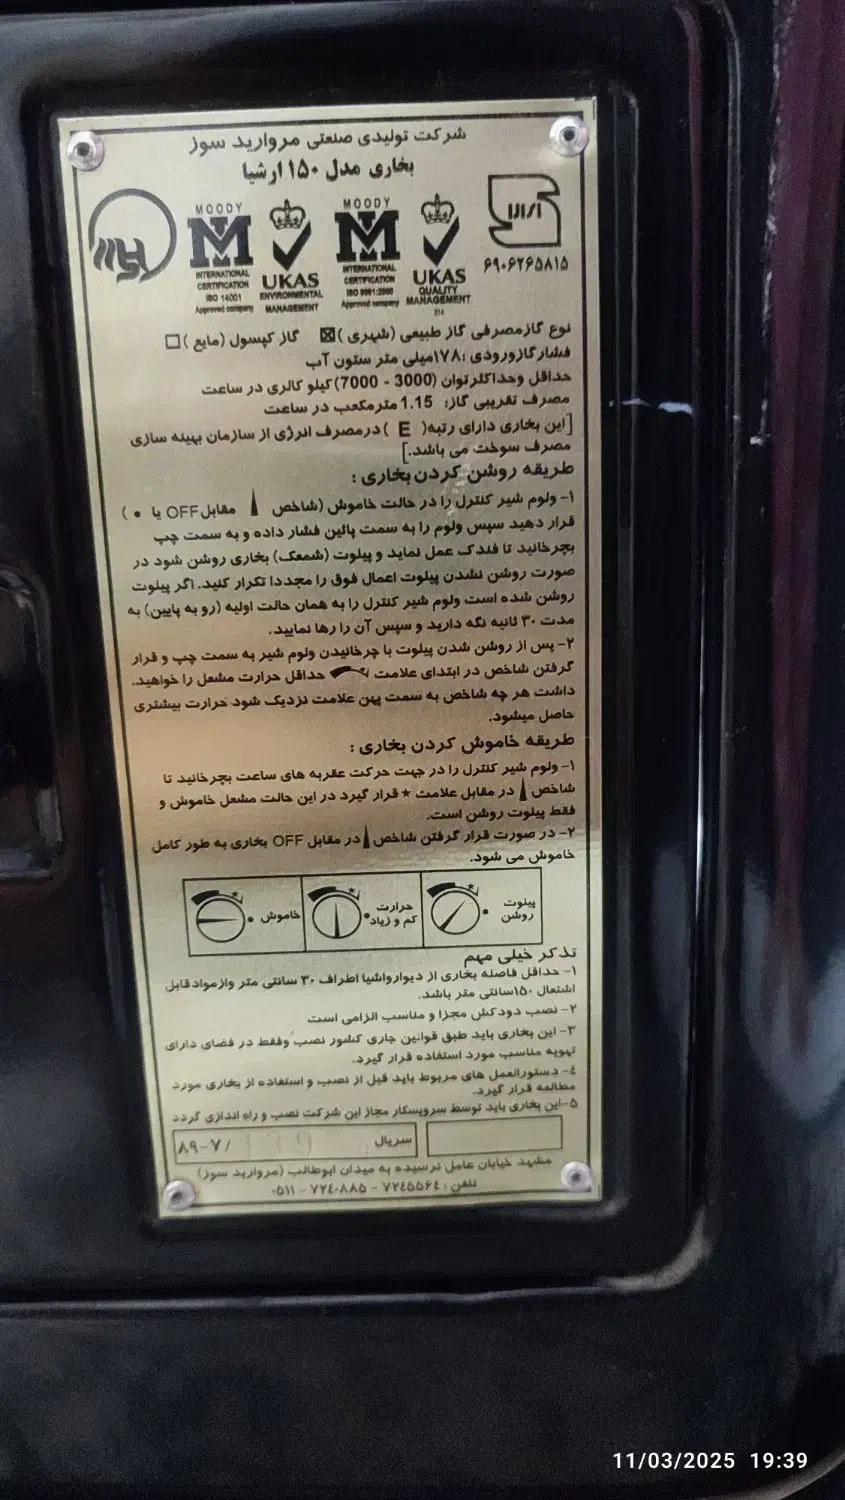 شرکت تولیدی صنعتی مروارید سوز
بخاری مدل ۱۵۰ ارشیا
MOODY
INTERNATIONAL
CERTIFICATION
ISO 14001
Approved company
UKAS
ENVIRONMENTAL
MANAGEMENT
MOODY
INTERNATIONAL
CERTIFICATION
ISO 9001:2000
Approved company
UKAS
QUALITY
MANAGEMENT
014
۶۹۰۶۲۶۵۸۱۵
نوع گازمصرفی گاز طبیعی (شهری) ☒ گاز کپسول (مایع) ☐
فشارگازورودی :۱۷۸میلی متر ستون آب
حداقل وحداکلرتوان (3000 - 7000)کیلو کالری در ساعت
مصرف تقریبی گاز: 1.15 مترمکعب در ساعت
[این بخاری دارای رتبه( E ) درمصرف انرژی از سازمان بهینه سازی
مصرف سوخت می باشد.]
طریقه روشن کردن بخاری :
۱- ولوم شیر کنترل را در حالت خاموش (شاخص مقابل OFF یا • )
قرار دهید سپس ولوم را به سمت پائین فشار داده و به سمت چپ
بچرخانید تا فندک عمل نماید و پیلوت (شمعک) بخاری روشن شود در
صورت روشن نشدن پیلوت اعمال فوق را مجددا تکرار کنید. اگر پیلوت
روشن شده است ولوم شیر کنترل را به همان حالت اولیه (رو به پایین) به
مدت ۳۰ ثانیه نگه دارید و سپس آن را رها نمایید.
۲- پس از روشن شدن پیلوت با چرخانیدن ولوم شیر به سمت چپ و قرار
گرفتن شاخص در ابتدای علامت حداقل حرارت مشعل را خواهید.
داشت هر چه شاخص به سمت پهن علامت نزدیک شود حرارت بیشتری
حاصل میشود.
طریقه خاموش کردن بخاری :
۱- ولوم شیر کنترل را در جهت حرکت عقربه های ساعت بچرخانید تا
شاخص در مقابل علامت * قرار گیرد در این حالت مشعل خاموش و
فقط پیلوت روشن است.
۲- در صورت قرار گرفتن شاخص در مقابل OFF بخاری به طور کامل
خاموش می شود.
پیلوت
روشن
حرارت
کم و زیاد
خاموش
تذکر خیلی مهم
۱- حداقل فاصله بخاری از دیوارواشیا اطراف ۳۰ سانتی متر وازموادقابل
اشتعال ۱۵۰سانتی متر باشد.
۲- نصب دودکش مجزا و مناسب الزامی است
۳- این بخاری باید طبق قوانین جاری کشور نصب وفقط در فضای دارای
تهویه مناسب مورد استفاده قرار گیرد.
۴- دستورالعمل های مربوط باید قبل از نصب و استفاده از بخاری مورد
مطالعه قرار گیرد.
۵-این بخاری باید توسط سرویسکار مجاز این شرکت نصب و راه اندازی گردد
سریال
۸۹-۷/
مشهد خیابان عامل نرسیده به میدان ابوطالب (مروارید سوز)
تلفن : ۷۲۴۵۵۶۴ - ۷۲۴۰۸۸۵ - ۰۵۱۱
11/03/2025 19:39